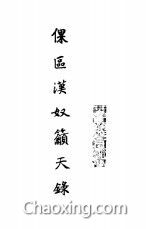 倮區漢奴籲天錄
Chaoxing.com